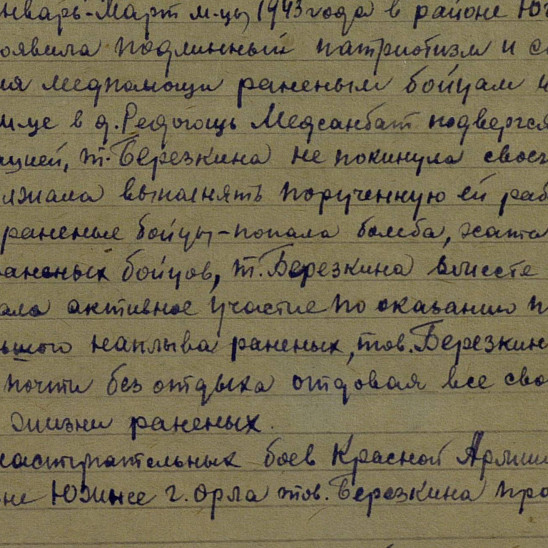 нварь-Март м-цы 1943 года в районе Юг
роявила подлинный патриотизм и с
ия медпомощи раненым бойцам и
м-це в д. Редогощь Медсанбат подвергся
ацией, т. Березкина не покинула своег
лжала выполнять порученную ей раб
раненые бойцы-попала бомба, хата
раненых бойцов, т. Березкина вместе
ала активное участие по оказанию п
ьшого наплыва раненых, тов. Березкин
почти без отдыха отдовая все сво
жизни раненых.
наступательных боев Красной Арми
не Южнее г. Орла тов. Березкина про